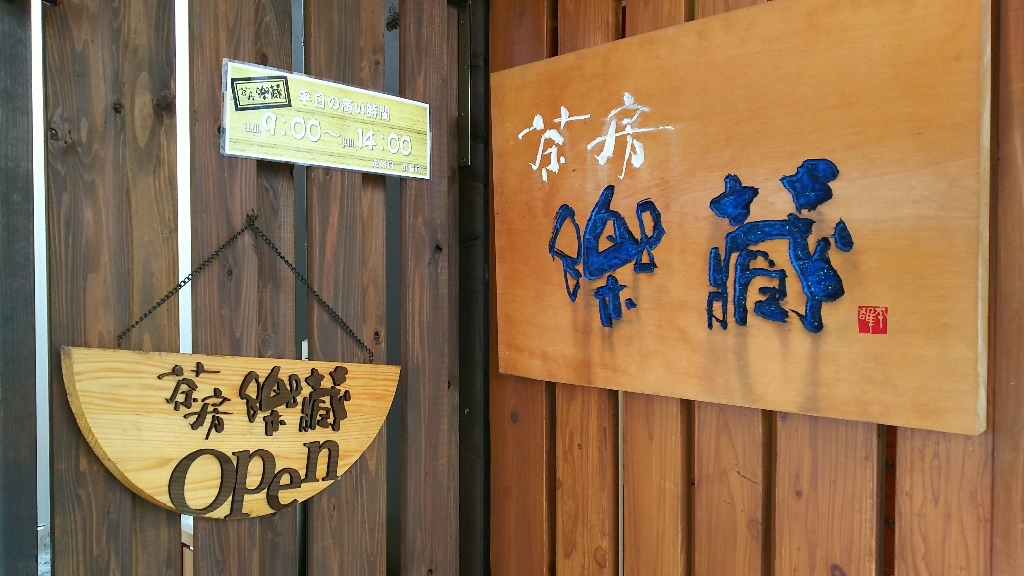 茶房 樂藏
平日の営業時間
9:00～14:00
茶房 樂藏
Open
茶房
樂藏